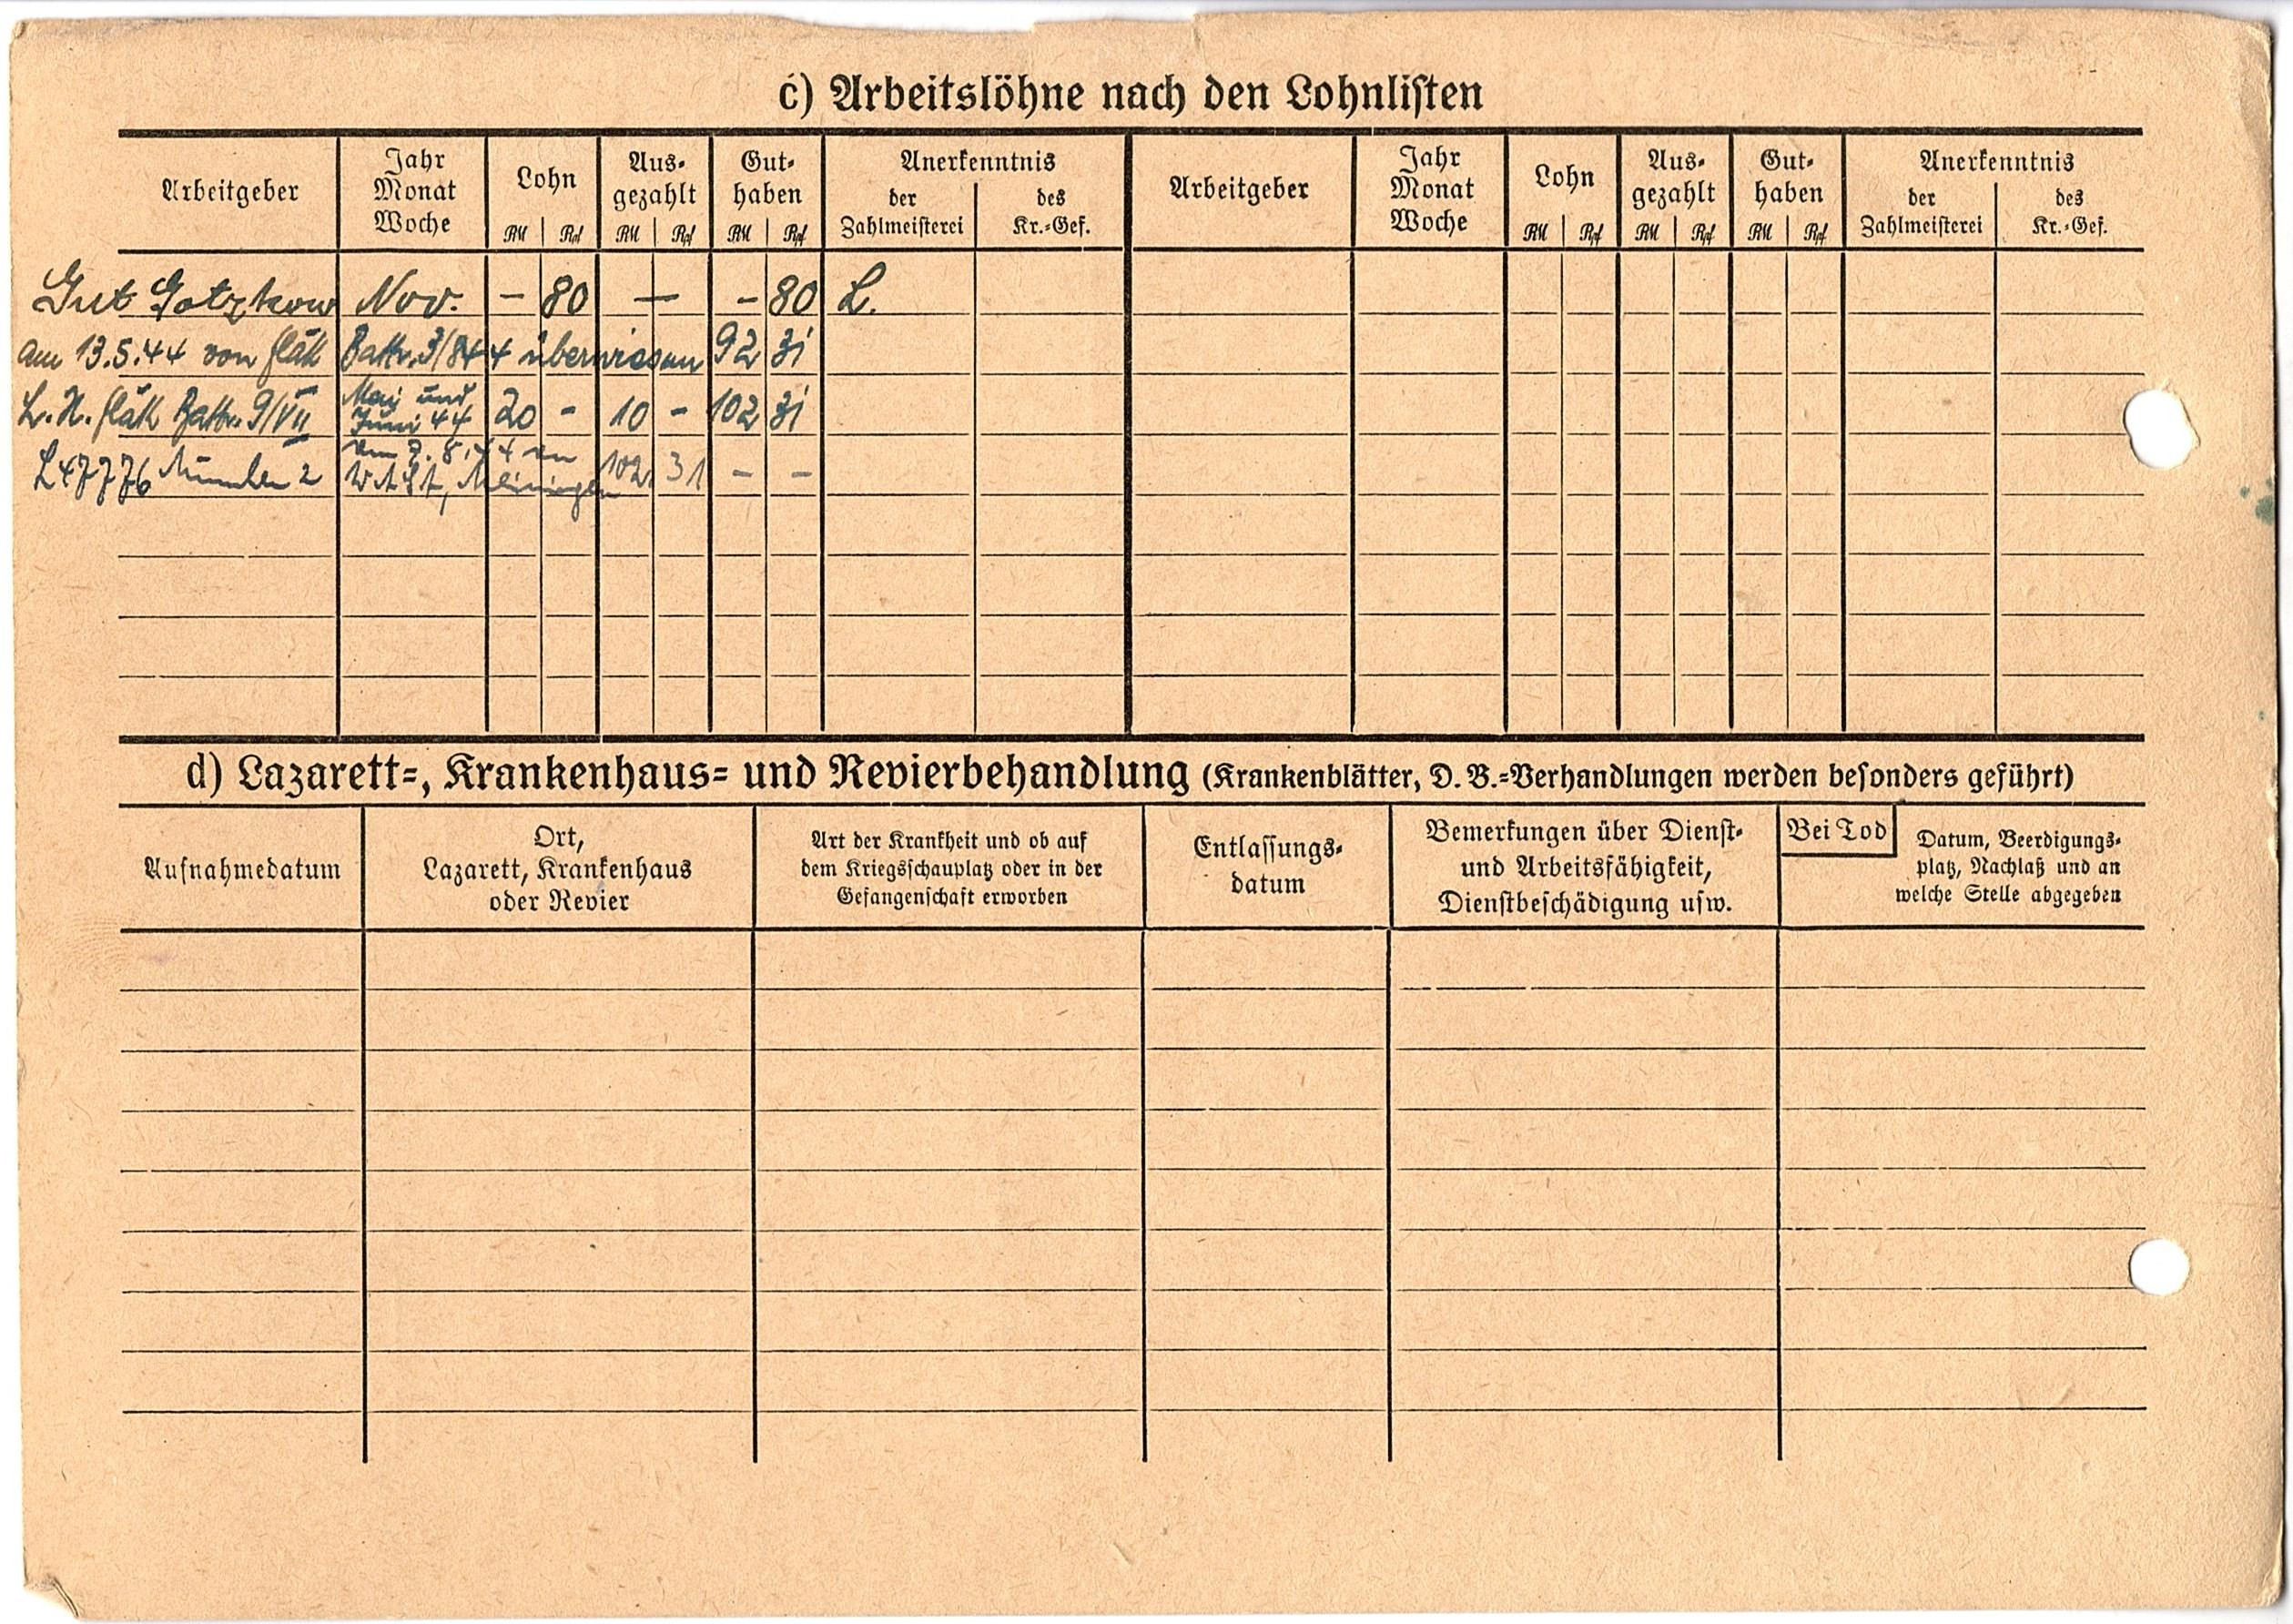 c) Arbeitslöhne nach den Lohnlisten
Arbeitgeber
Jahr
Monat
Woche
Lohn
RM Rpf
Aus-
gezahlt
RM Rpf
Gut-
haben
RM Rpf
Anerkenntnis
der
Zahlmeisterei
des
Kr.-Gef.
Arbeitgeber
Jahr
Monat
Woche
Lohn
RM Rpf
Aus-
gezahlt
RM Rpf
Gut-
haben
RM Rpf
Anerkenntnis
der
Zahlmeisterei
des
Kr.-Gef.
Gut Gotzkow Nov. - 80 — - 80 L.
am 13.5.44 von Flak Battr. 3/844 überwiesen 92 31
L.H. Flak Battr. 9/VII Mai und Juni 44 20 - 10 - 102 31
L47776 München 2 am 7.8.44 an
W.A.St, Meiningen 102 31 - -
d) Lazarett-, Krankenhaus- und Revierbehandlung (Krankenblätter, D. B.-Verhandlungen werden besonders geführt)
Aufnahmedatum
Ort,
Lazarett, Krankenhaus
oder Revier
Art der Krankheit und ob auf
dem Kriegsschauplatz oder in der
Gefangenschaft erworben
Entlassungs-
datum
Bemerkungen über Dienst-
und Arbeitsfähigkeit,
Dienstbeschädigung usw.
Bei Tod
Datum, Beerdigungs-
platz, Nachlaß und an
welche Stelle abgegeben